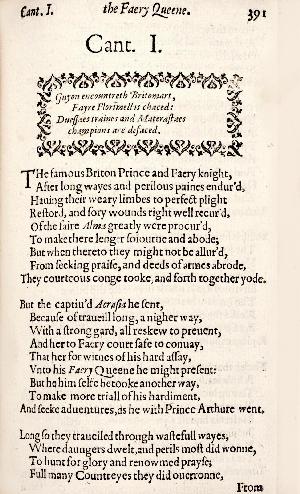 Cant. I.
the Faery Queene.
391
Cant. I.
Guyon encountreth Britomart,
Fayre Florimell is chaced:
Duessaes traines and Materastaes
champions are defaced.
THe famous Briton Prince and Faery knight,
After long wayes and perilous paines endur'd,
Hauing their weary limbes to perfect plight
Restord, and sory wounds right well recur'd,
Of the faire Alma greatly were procur'd,
To make there lenger soiourne and abode;
But when thereto they might not be allur'd,
From seeking praise, and deeds of armes abrode,
They courteous conge tooke, and forth together yode.
But the captiu'd Acrasia he sent,
Because of trauell long, a nigher way,
With a strong gard, all reskew to preuent,
And her to Faery court safe to conuay,
That her for witnes of his hard assay,
Vnto his Faery Queene he might present:
But he him selfe betooke another way,
To make more triall of his hardiment,
And seeke aduentures, as he with Prince Arthure went.
Long so they traueiled through wastefull wayes,
Where daungers dwelt, and perils most did wonne,
To hunt for glory and renowmed prayse;
Full many Countreyes they did ouerronne,
From